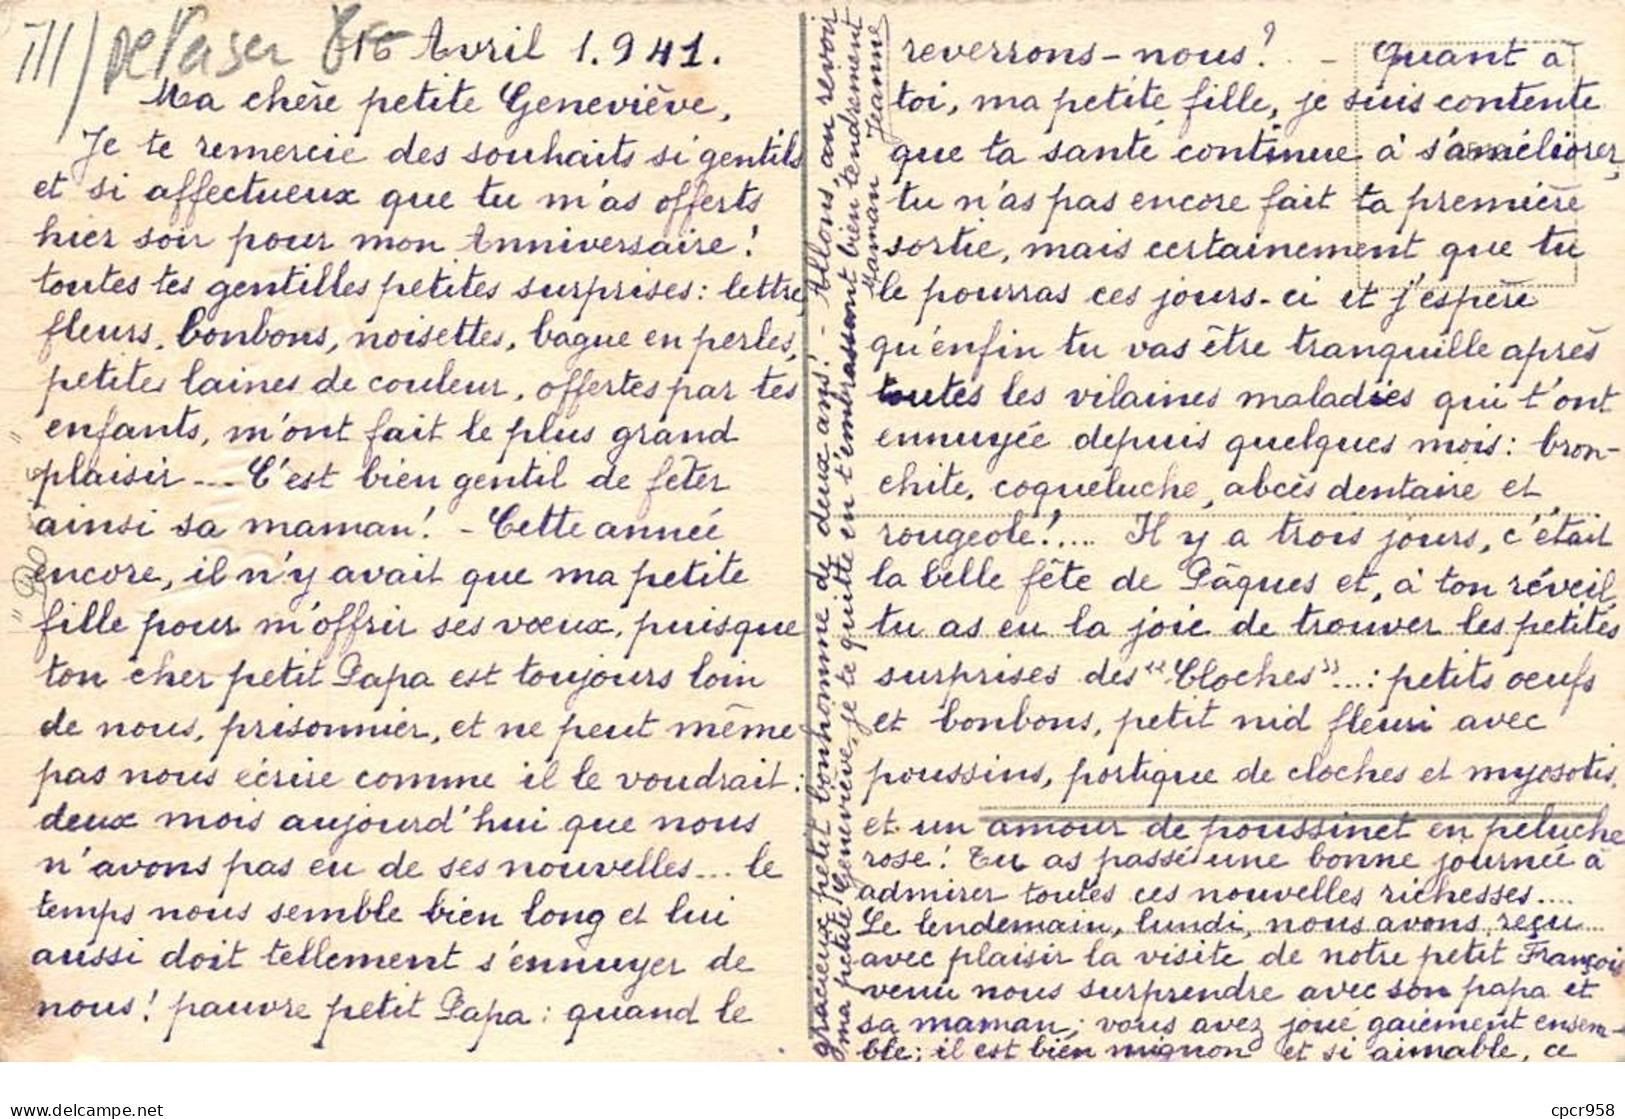 16 Avril 1.941.
Ma chère petite Geneviève,
Je te remercie des souhaits si gentils
et si affectueux que tu m'as offerts
hier soir pour mon Anniversaire !
toutes tes gentilles petites surprises : lettre,
fleurs, bonbons, noisettes, bague en perles,
petites laines de couleur, offertes par tes
enfants, m'ont fait le plus grand
plaisir ... C'est bien gentil de fêter
ainsi sa maman ! - Cette année
encore, il n'y avait que ma petite
fille pour m'offrir ses vœux, puisque
ton cher petit Papa est toujours loin
de nous, prisonnier, et ne peut même
pas nous écrire comme il le voudrait :
deux mois aujourd'hui que nous
n'avons pas eu de ses nouvelles ... le
temps nous semble bien long et lui
aussi doit tellement s'ennuyer de
nous ! pauvre petit Papa : quand le
reverrons-nous ? - Quant à
toi, ma petite fille, je suis contente
que ta santé continue à s'améliorer,
tu n'as pas encore fait ta première
sortie, mais certainement que tu
le pourras ces jours-ci et j'espère
qu'enfin tu vas être tranquille après
toutes les vilaines maladies qui t'ont
ennuyée depuis quelques mois : bron-
chite, coqueluche, abcès dentaire et
rougeole ! .... Il y a trois jours, c'était
la belle fête de Pâques et, à ton réveil,
tu as eu la joie de trouver les petites
surprises des "Cloches" ... : petits oeufs
et bonbons, petit nid fleuri avec
poussins, portique de cloches et myosotis,
et un amour de poussinet en peluche
rose ! Tu as passé une bonne journée à
admirer toutes ces nouvelles richesses ....
Le lendemain, lundi, nous avons reçu
avec plaisir la visite de notre petit François
venu nous surprendre avec son papa et
sa maman ; vous avez joué gaiement ensem-
ble ; il est bien mignon et si aimable, ce
gracieux petit bonhomme de deux ans ! - Allons au revoir
ma petite Geneviève, je te quitte en t'embrassant bien tendrement
Maman Jeanne
cpcr958